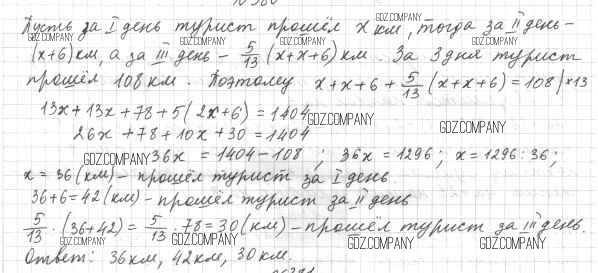 Пусть за I день турист прошёл x км, тогда за II день –
(x+6) км, а за III день – 5/13 (x+x+6) км. За 3 дня турист
прошёл 108 км. Поэтому x+x+6+ 5/13 (x+x+6) = 108 | ×13
13x+13x+78+5(2x+6) = 1404
26x+78+10x+30=1404
36x = 1404-108 ; 36x = 1296; x=1296:36;
x = 36 (км) – прошёл турист за I день.
36+6=42 (км) – прошёл турист за II день
5/13 · (36+42) = 5/13 · 78=30 (км) – прошёл турист за III день.
Ответ: 36 км, 42 км, 30 км.
GDZ.COMPANY
GDZ.COMPANY
GDZ.COMPANY
GDZ.COMPANY
GDZ.COMPANY
GDZ.COMPANY
GDZ.COMPANY
GDZ.COMPANY
GDZ.COMPANY
GDZ.COMPANY
GDZ.COMPANY
GDZ.COMPANY